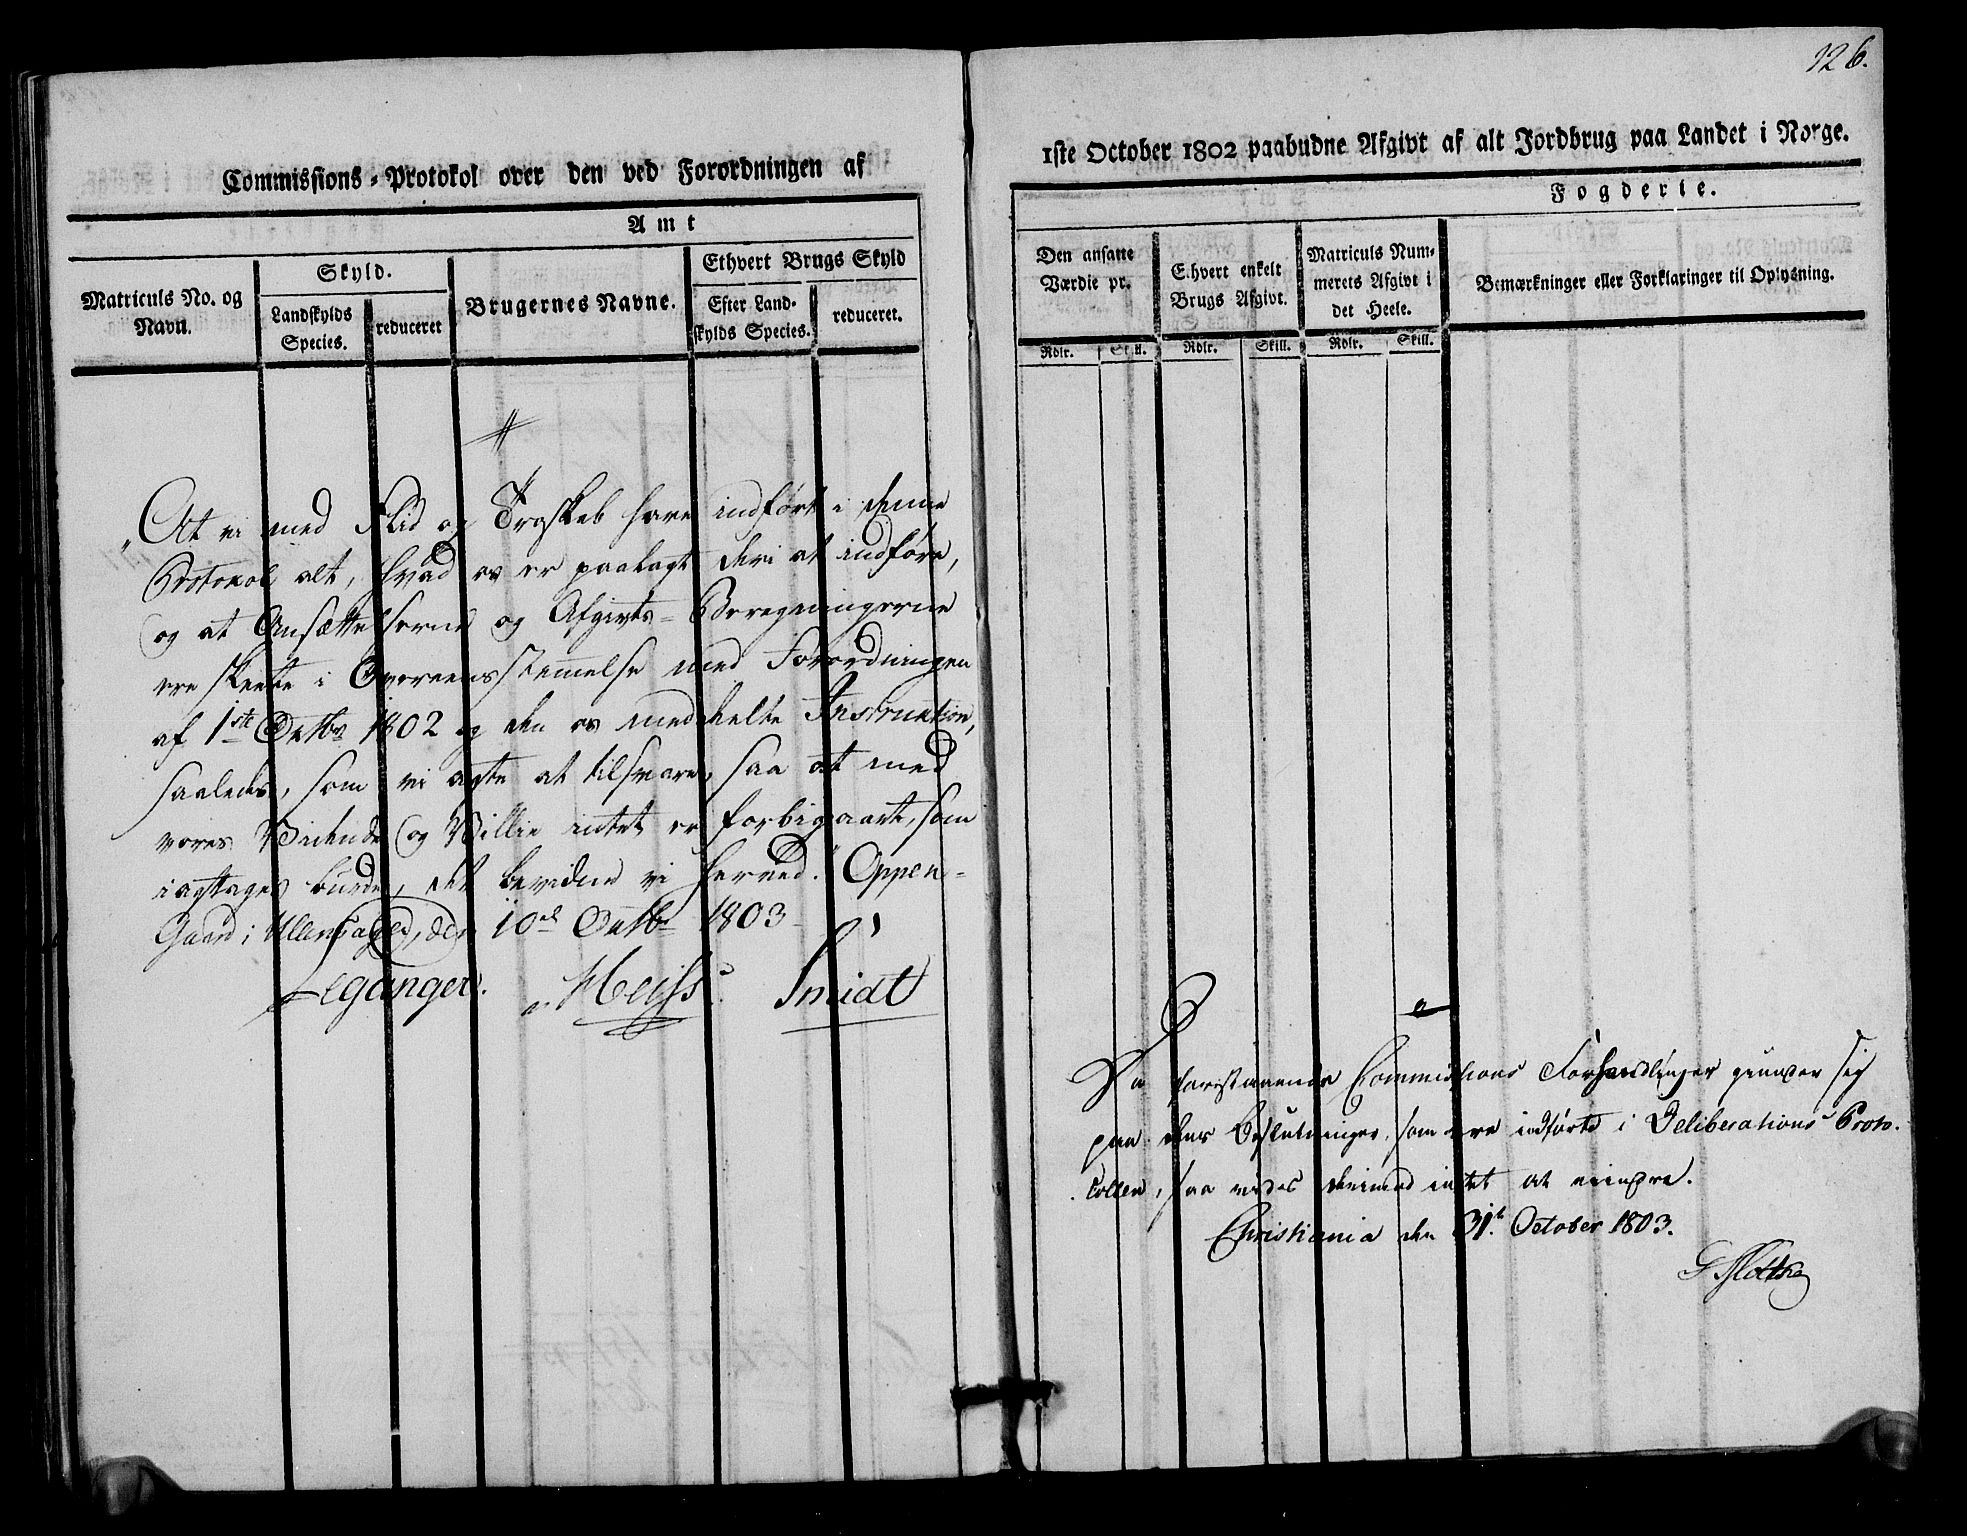 126.
Commissions-Protokol over den ved Forordningen af
1ste October 1802 paabudne Afgivt af alt Jordbrug paa Landet i Norge.
Amt
Fogderie.
Matriculs No. og Navn.
Skyld.
Landskylds Species.
reduceret
Brugernes Navne.
Ethvert Brugs Skyld
Efter Landskylds Species.
reduceret.
Den ansatte Værdie pr.
Ethvert enkelt Brugs Afgivt.
Matriculs Nummerets Afgivt i det Heele.
Bemærkninger eller Forklaringer til Oplysning.
Rdlr. Skill. Rdlr. Skill. Rdlr. Skill.
"At vi med Flid og Troskab have indført i denne
Protokol alt, hvad os er paalagt deri at indføre,
og at Ansættelserne og Afgivts-Beregningerne
ere skeete i Overeensstemmelse med Forordningen
af 1ste Octbr 1802 og den os meddeelte Instruktion,
saaledes, som vi agte at tilsvare, saa at med
vores Vidende og Villie intet er forbigaaet, som
iagttages burde, det bevidne vi herved." Oppen-
Gaard i Ullensager, den 10de Octbr 1803
Leganger. Heyss. Smidt
Da forestaaende Commissions Forhandlinger grunder sig
paa dens Beslutninger, som ere indførte i Deliberations Proto-
collen, saa vides derimod intet at erindre.
Christiania den 31te October 1803.
G Moltke